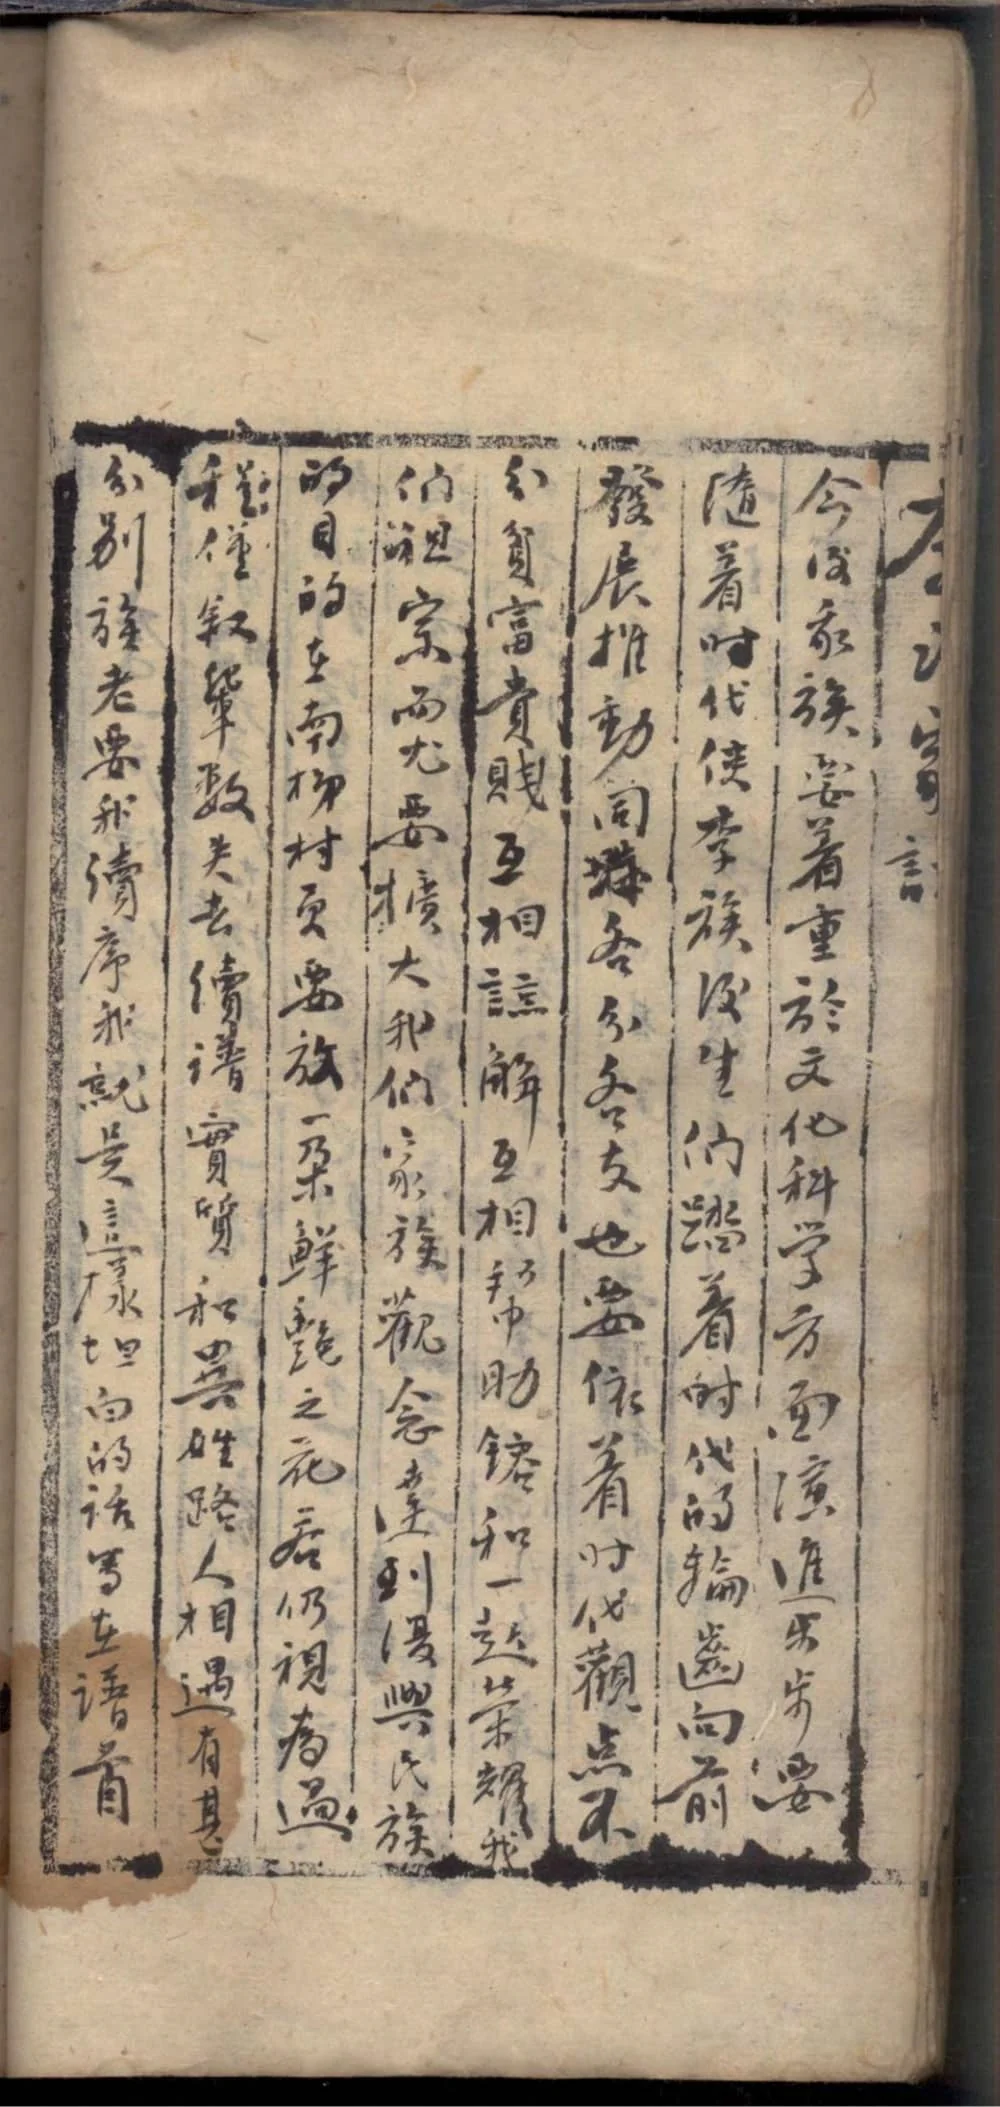 李氏家譜
今後我族要着重於文化科学方面演進步步要
隨着时代使李族後生们踏着时代的輪齒向前
發展推動同時各分各支也要依着时代觀点不
分貧富貴賤互相諒解互相帮助鎔和一起荣耀我
们祖宗而尤要擴大我们家族觀念達到復興民族
的目的在南柳村更要放一朵鮮艷之花若仍視為過
程僅叙輩数失去續譜實質和異姓路人相遇有甚
分别族老要我續序我就是這樣坦白的话写在譜首